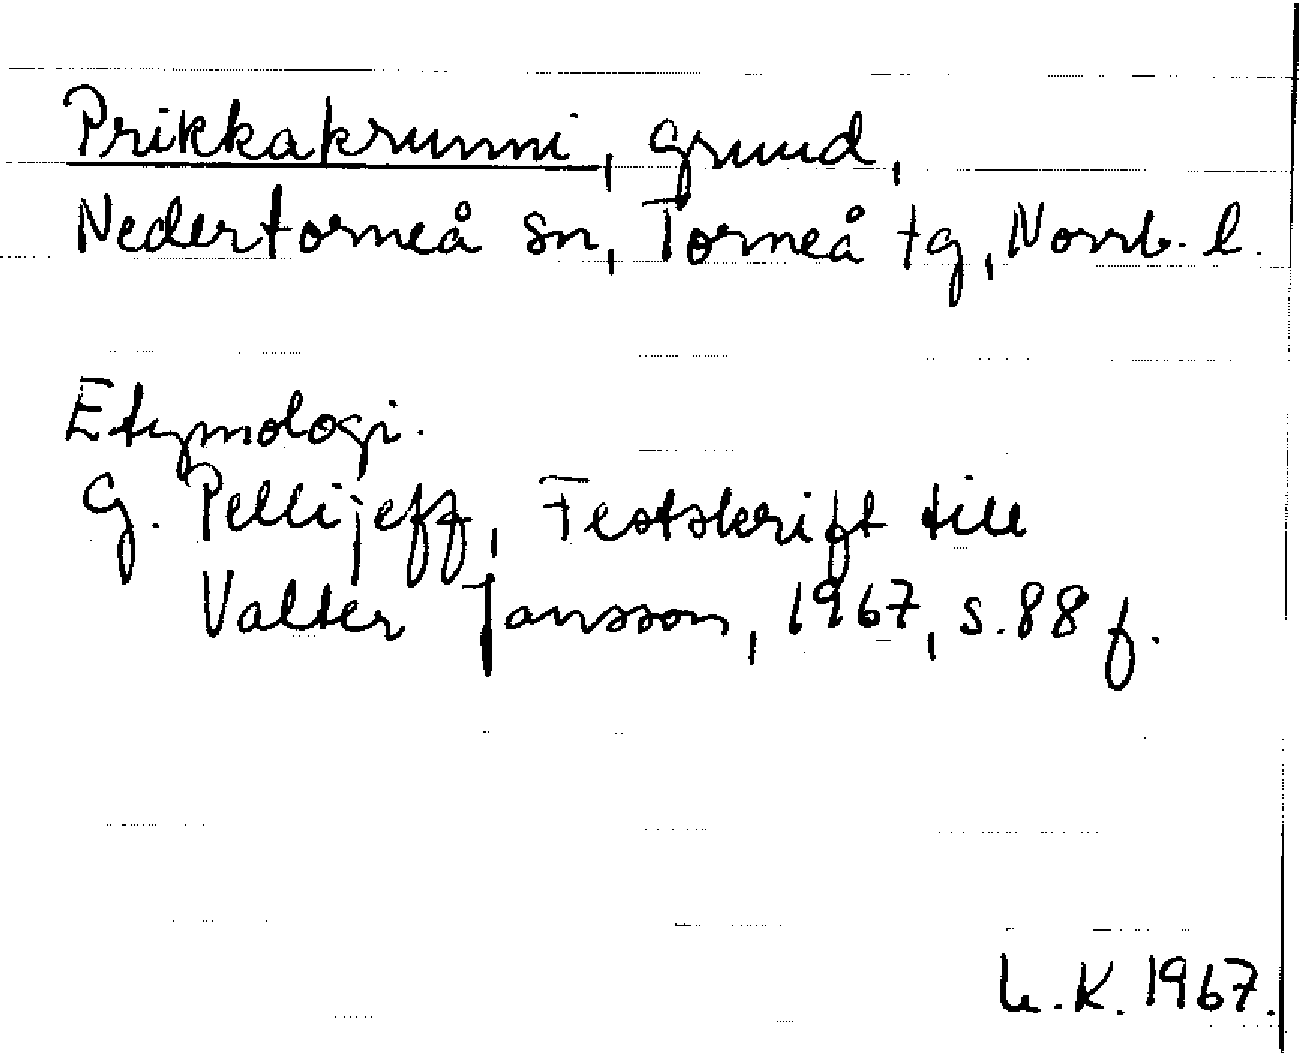 Prikkakrunni, grund,
Nedertorneå sn, Torneå tg, Norrb. l.
Etymologi.
G. Pellijeff, Festskrift till
Valter Jansson, 1967, s. 88 f.
K. 1967.